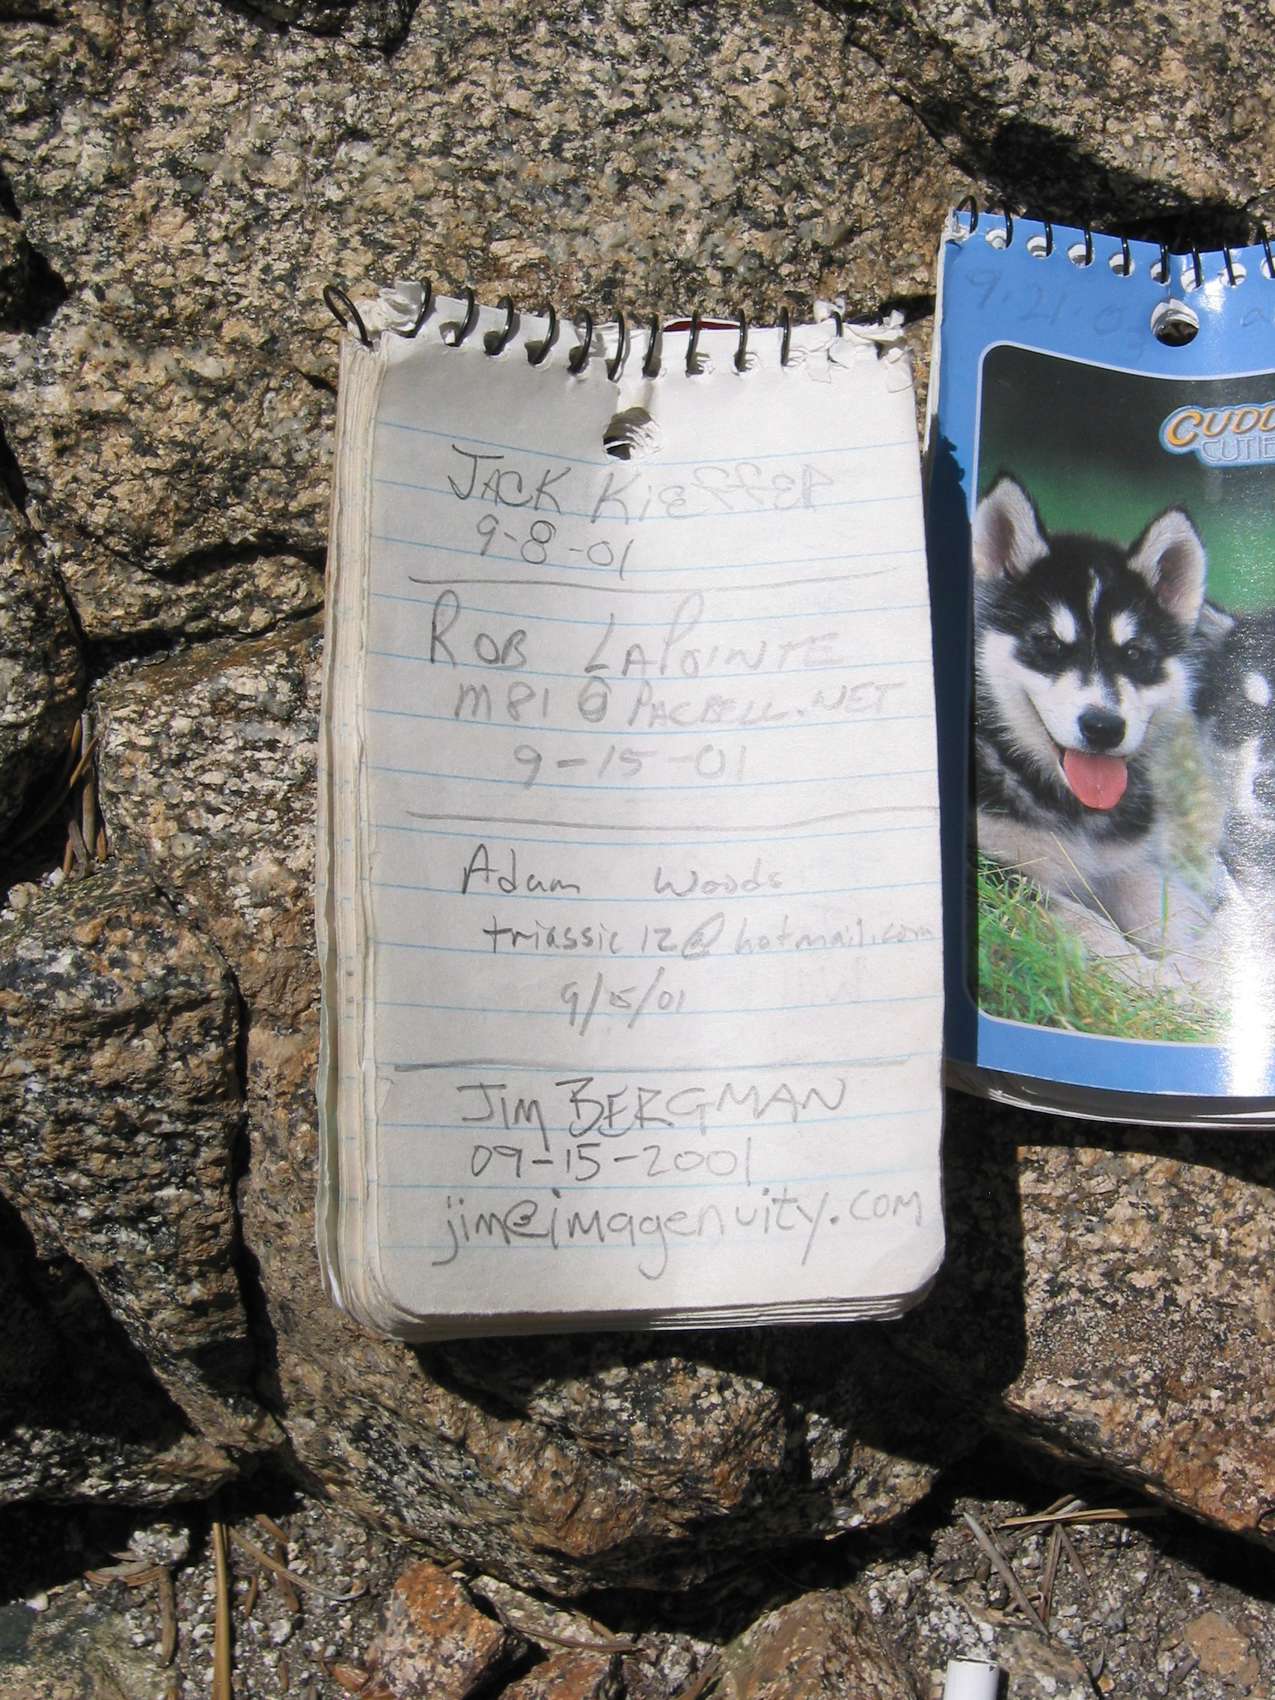 JACK KiEFFER
9-8-01
ROB LAPOINTE
M81@PACBELL.NET
9-15-01
Adam Woods
triassic12@hotmail.com
9/5/01
Jim BERGMAN
09-15-2001
jim@imagenuity.com
9.21.03
CUDD
CUTIE